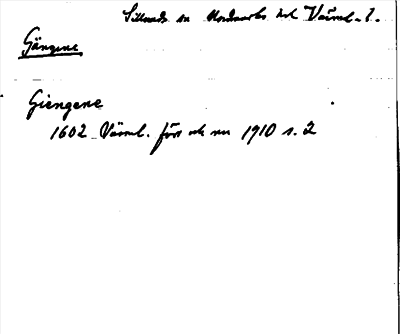 Sillerud sn Nordmarks hd Värml. l.
Gängene
Giengene
1602 Värml. förr och nu 1910 s. 2